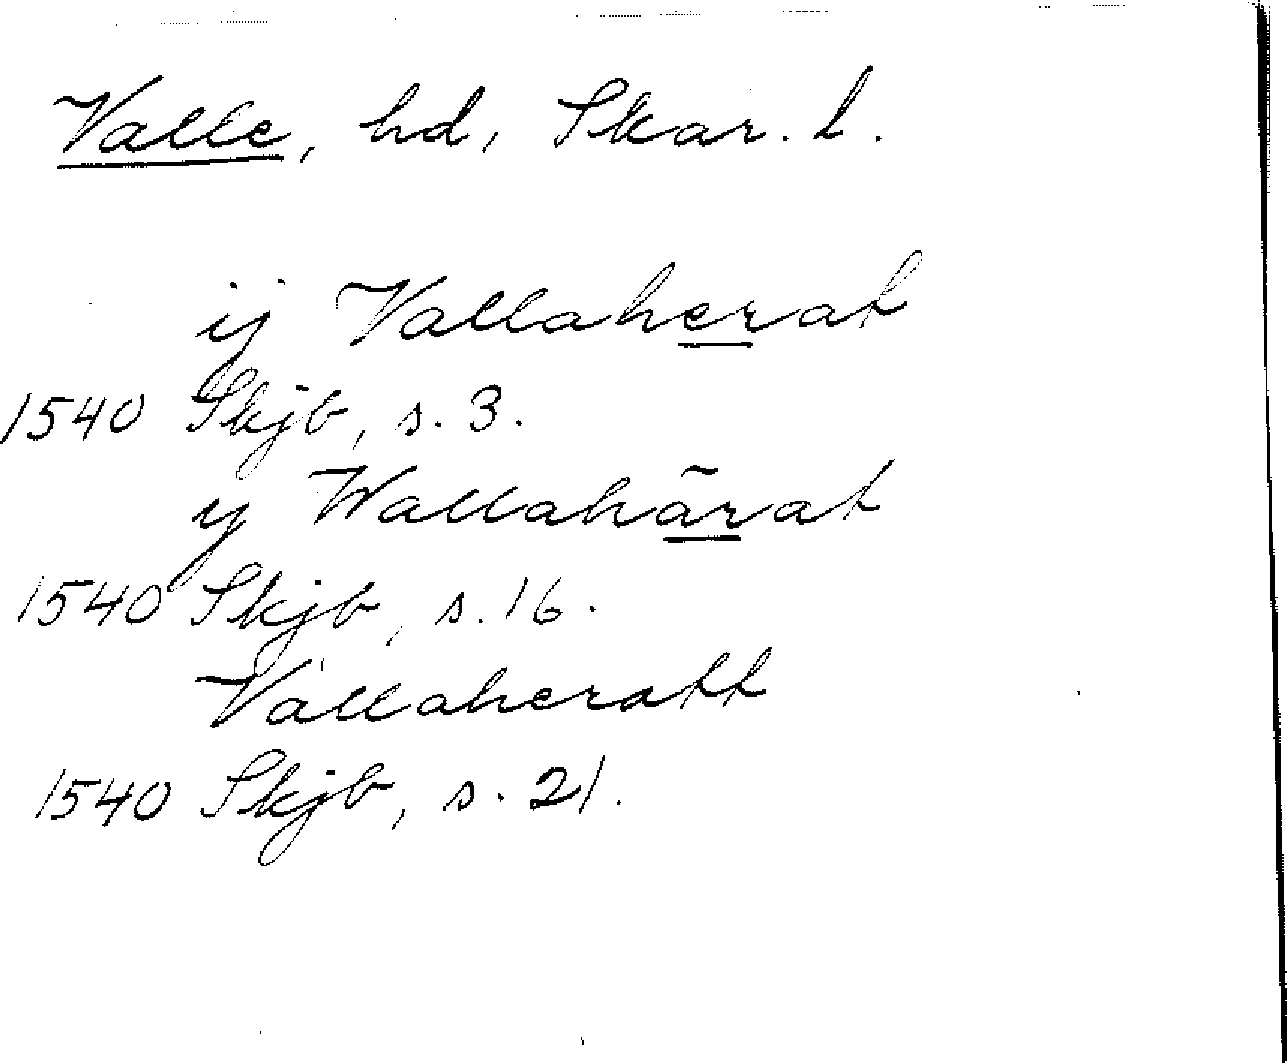 Valle, hd, Skar. l.
ij Vallaherat
1540 Skjb, s. 3.
y Wallahärat
1540 Skjb, s. 16.
Vallaheratt
1540 Skjb, s. 21.